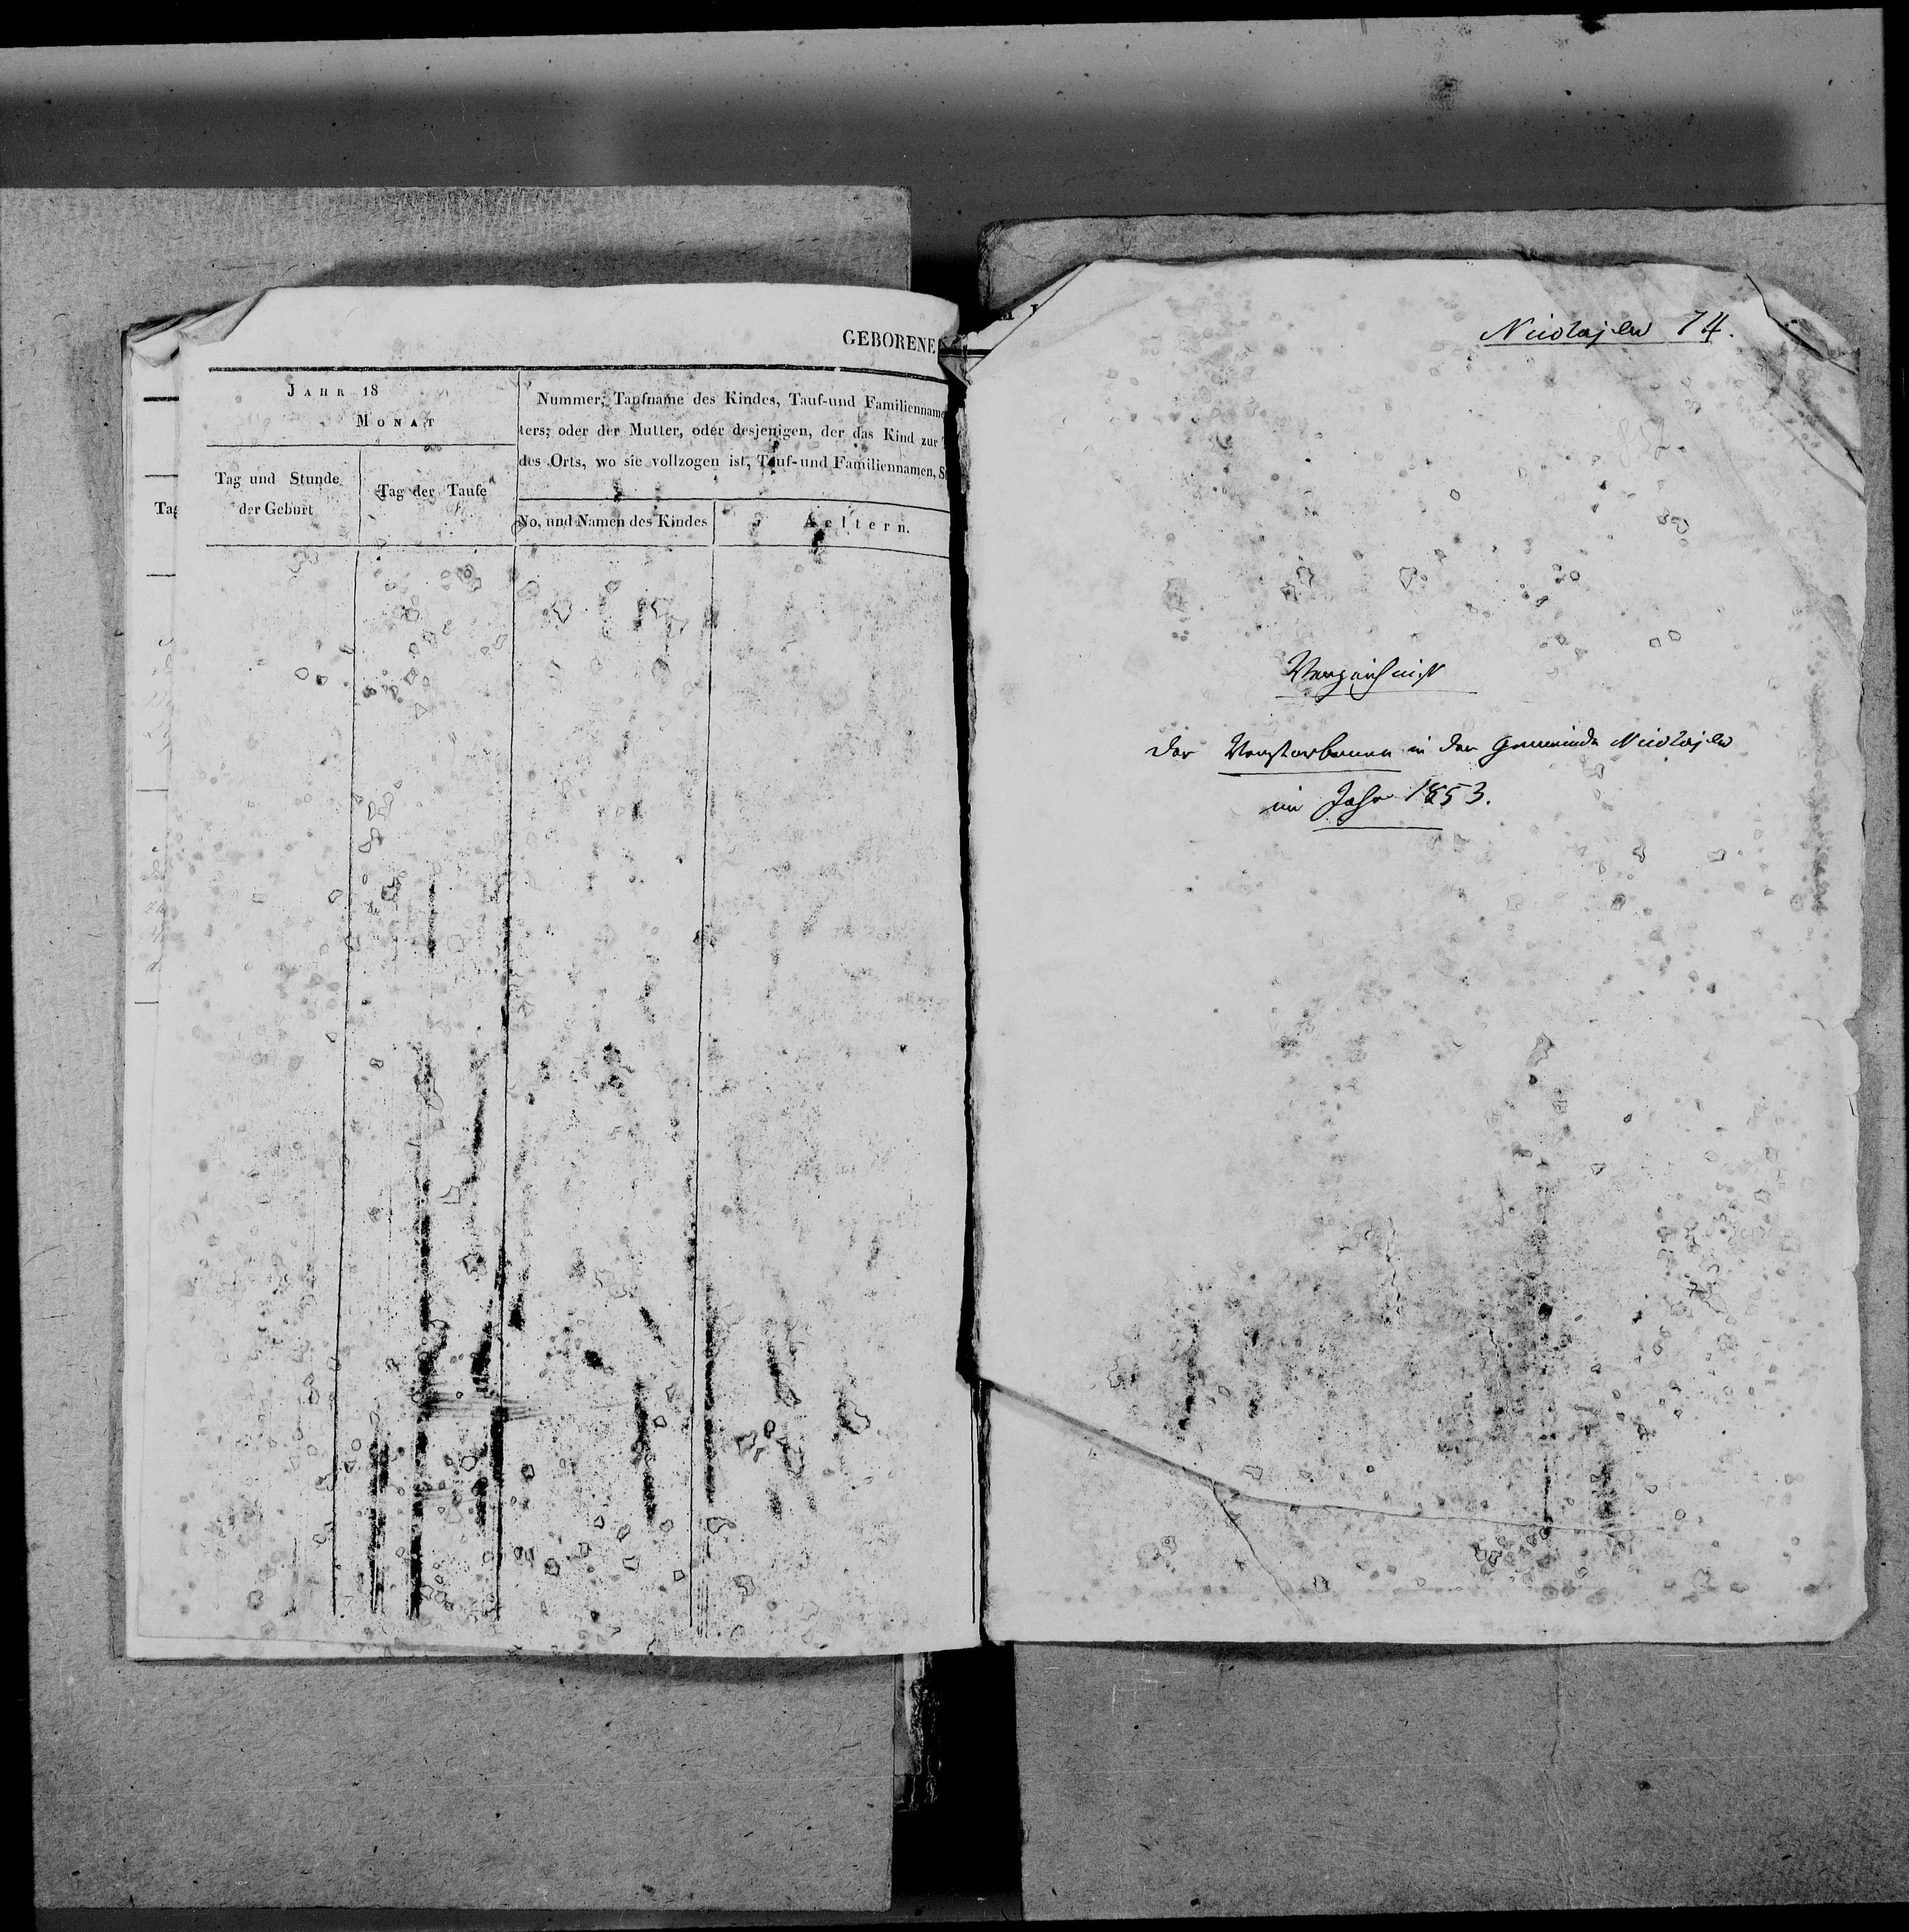 GEBORENE
JAHR 18
MONAT
Nummer, Taufname des Kindes, Tauf-und Familienname
ters; oder der Mutter, oder desjenigen, der das Kind zur
des Orts, wo sie vollzogen ist, Tauf-und Familiennamen,
Tag und Stunde
der Geburt
Tag der Taufe
No. und Namen des Kindes
Aeltern.
Tag
Nicolajew 74.
Verzeichniss
der Verstorbenen in der Gemeinde Nicolajew
im Jahr 1853.